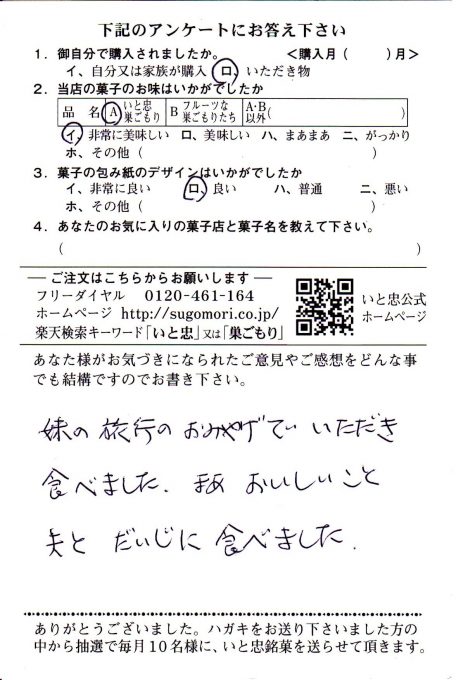 下記のアンケートにお答え下さい
1. 御自分で購入されましたか。 ＜購入月（　　）月＞
イ、自分又は家族が購入　ロ、いただき物
2. 当店の菓子のお味はいかがでしたか
品　名　A いと忠巣ごもり　B フルーツな巣ごもりたち　A・B以外（　　　）
イ、非常に美味しい　ロ、美味しい　ハ、まあまあ　ニ、がっかり
ホ、その他（　　　）
3. 菓子の包み紙のデザインはいかがでしたか
イ、非常に良い　ロ、良い　ハ、普通　ニ、悪い
ホ、その他（　　　）
4. あなたのお気に入りの菓子店と菓子名を教えて下さい。
（　　　）
― ご注文はこちらからお願いします ―
フリーダイヤル　0120-461-164
ホームページ　http://sugomori.co.jp/
楽天検索キーワード「いと忠」又は「巣ごもり」
いと忠公式
ホームページ
あなた様がお気づきになられたご意見やご感想をどんな事
でも結構ですのでお書き下さい。
妹の旅行のおみやげでいただき
食べました。まあ おいしいこと
夫と だいじに 食べました.
ありがとうございました。ハガキをお送り下さいました方の
中から抽選で毎月10名様に、いと忠銘菓を送らせて頂きます。